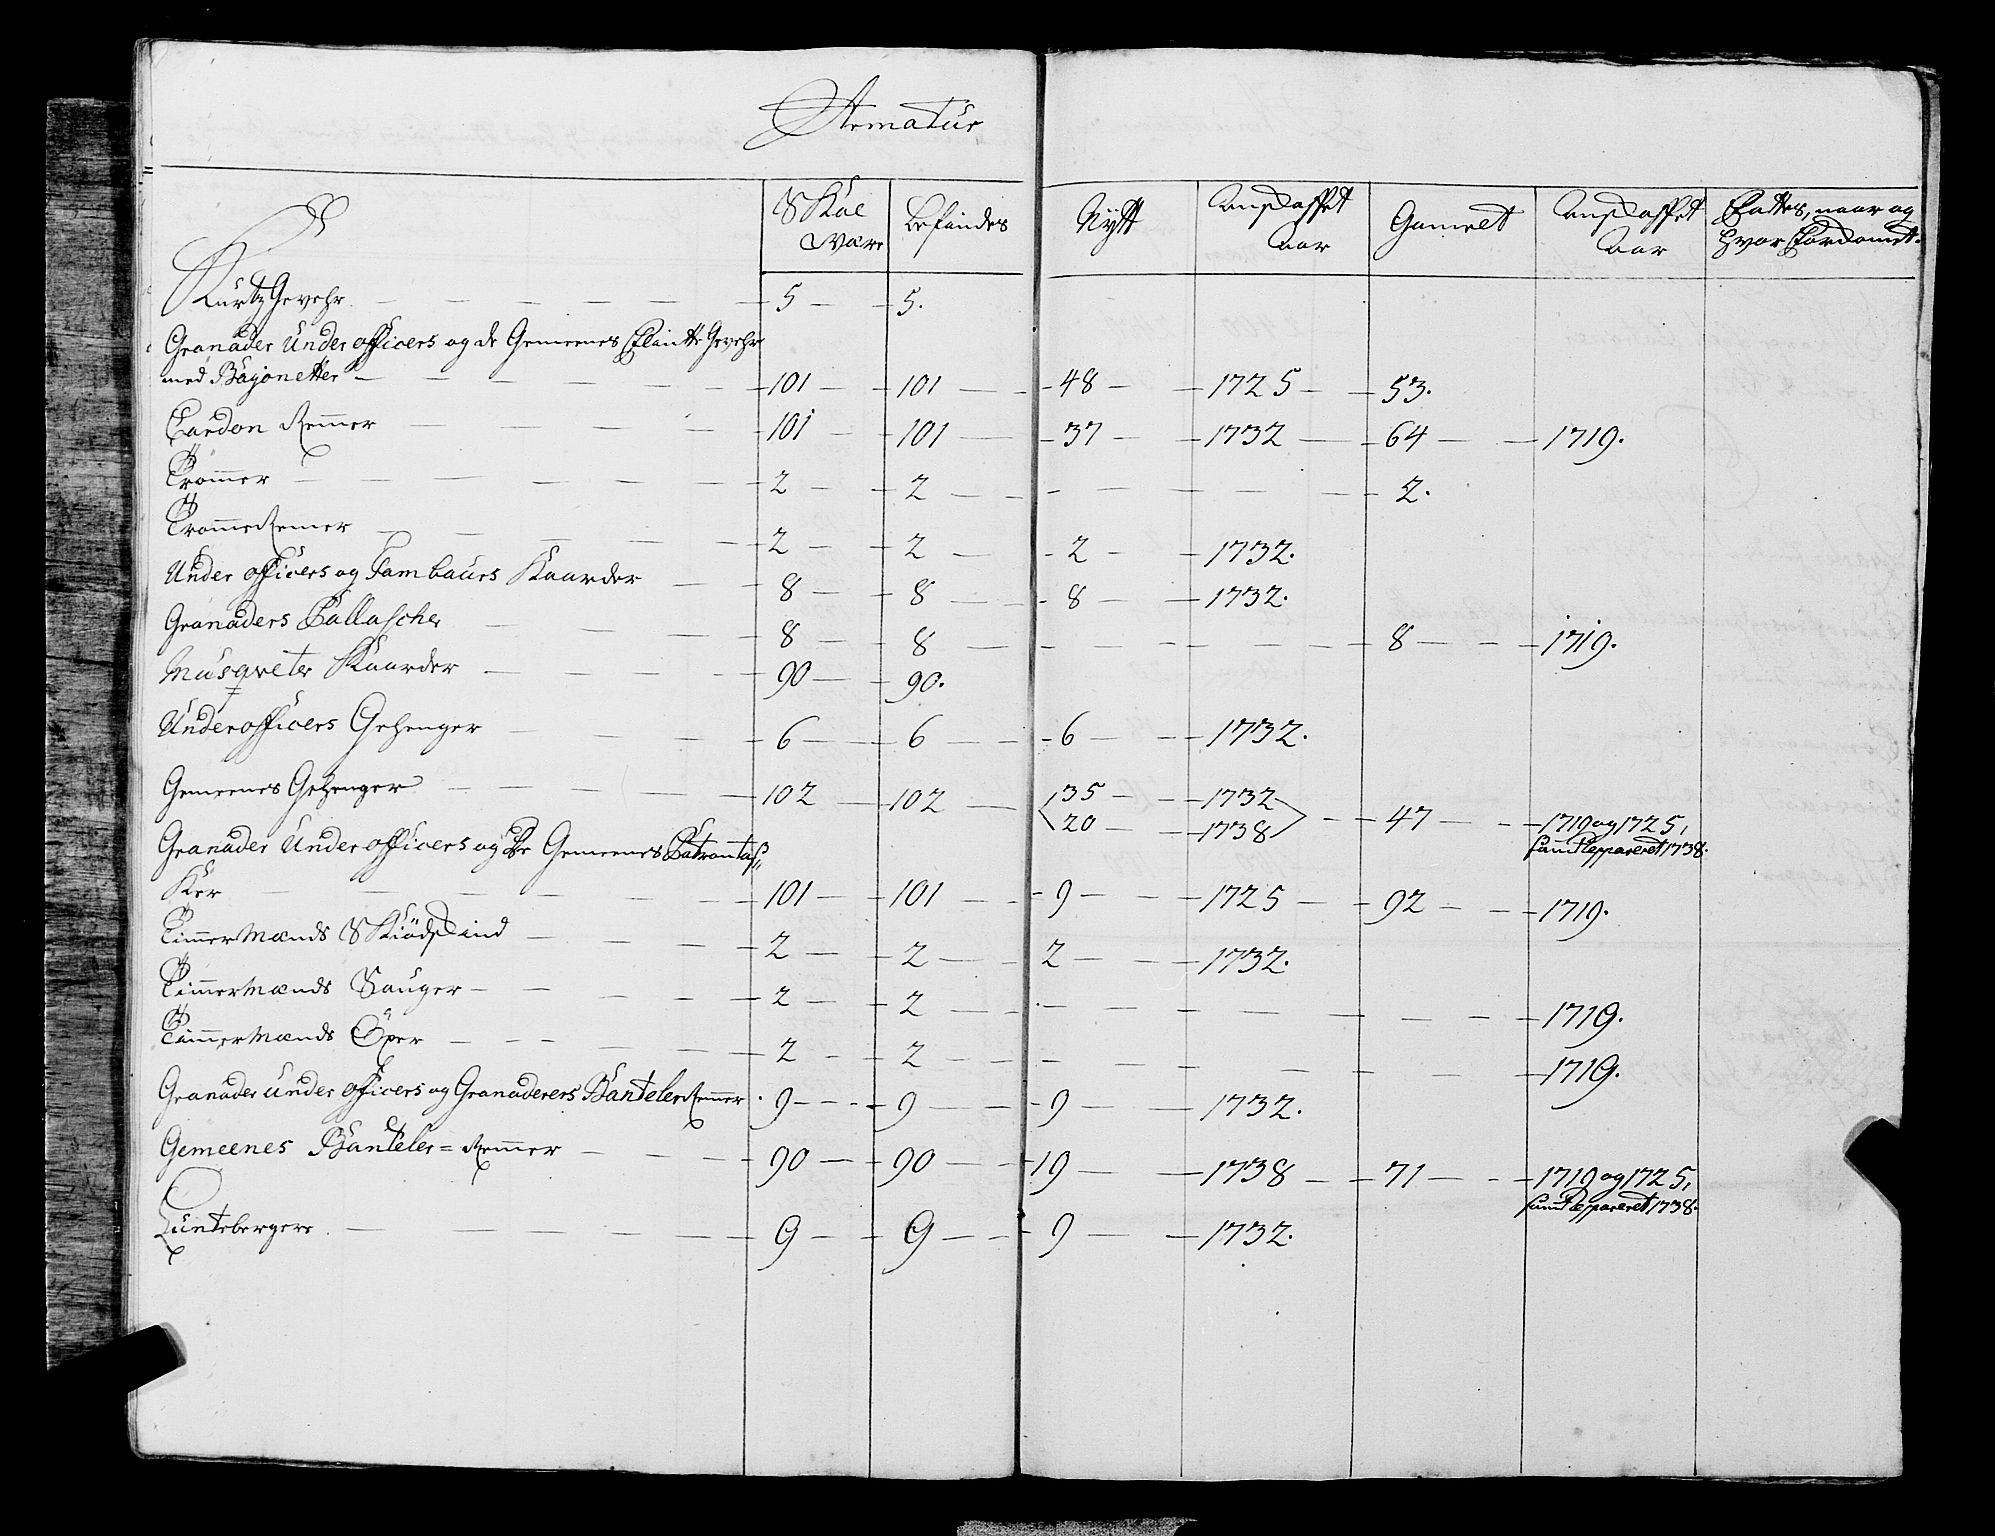 Armatur
Skal være | Befindes | Nÿtt | Anskaffet Aar | Gamelt | Anskaffet Aar | Fattes, naar og hvor fordomet.
Kürtz Gevehr — 5 — 5.
Granader Under officers og de Gemeenes Flintte Gevehr
med Bajonetter — 101 — 101 — 48 — 1725 — 53.
Cardon Remmer — 101 — 101 — 37 — 1732 — 64 — 1719.
Trommer — 2 — 2 — — — 2.
Tromme Remer — 2 — 2 — 2 — 1732.
Under officers og Tambours Kaarder — 8 — 8 — 8 — 1732.
Granaders Pallascher — 8 — 8 — — — 8 — 1719.
Musqveter Kaarder — 90 — 90.
Underofficers Gehenger — 6 — 6 — 6 — 1732.
Gemeenes Gehenger — 102 — 102 — 35 — 1732
20 — 1738 — 47 — 1719 og 1725,
samt Reppareret 1738.
Granader Under officers og De Gemeenes Patrontas=
Ker — 101 — 101 — 9 — 1725 — 92 — 1719.
Timmermænds Skiödskind — 2 — 2 — 2 — 1732.
Timmermænds Sauger — 2 — 2 — — — — 1719.
Timmermænds Öxer — 2 — 2 — — — — 1719.
Granader under officers og Granaderers Banteler Remmer. 9 — 9 — 9 — 1732.
Gemeenes Banteler = Remmer — 90 — 90 — 19 — 1738 — 71 — 1719 og 1725,
samt Reppareret 1738.
Luntebergere — 9 — 9 — 9 — 1732.